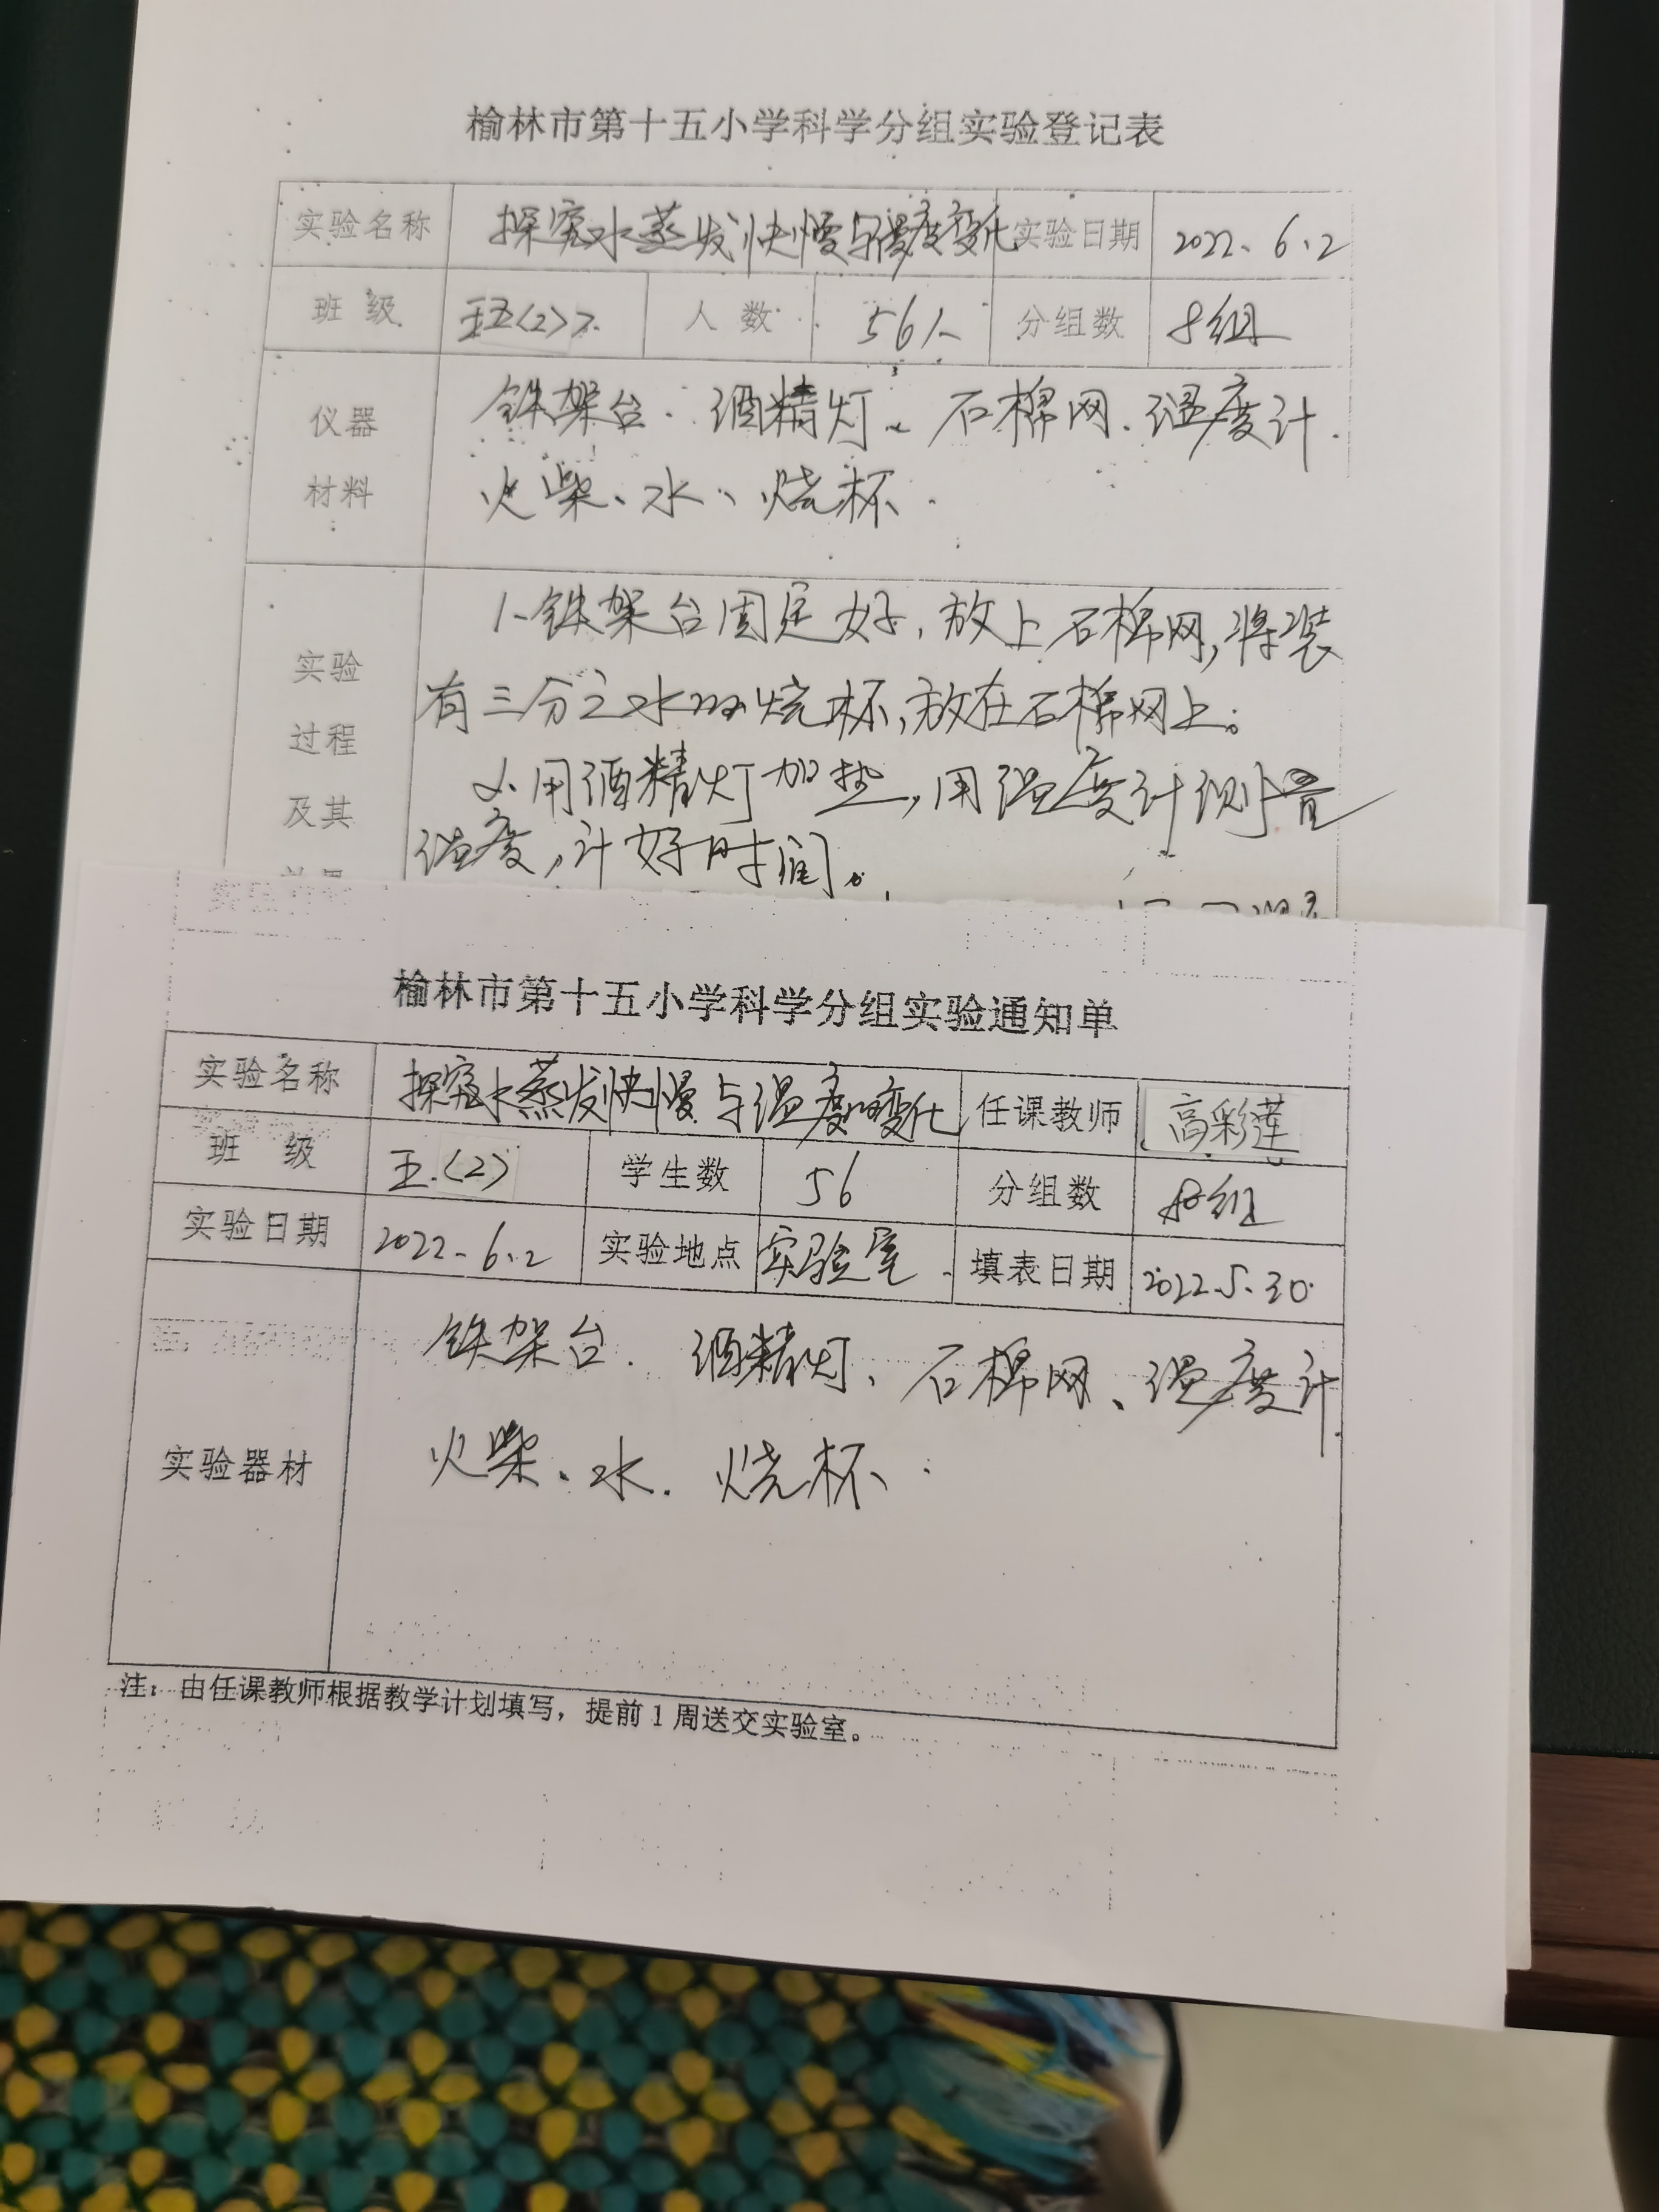 榆林市第十五小学科学分组实验登记表
实验名称 探究水蒸发快慢与温度变化 实验日期 2022.6.2
班 级 五(2) 人 数 56人 分组数 8组
仪器 铁架台.酒精灯、石棉网.温度计.
材料 火柴、水、烧杯.
实验 1.铁架台固定好,放上石棉网,将装
过程 有三分之水的烧杯,放在石棉网上。
及其 2.用酒精灯加热,用温度计测量
温度,计好时间。
榆林市第十五小学科学分组实验通知单
实验名称 探究水蒸发快慢与温度的变化 任课教师 高彩莲
班 级 五.(2) 学生数 56 分组数 组
实验日期 2022.6.2 实验地点 实验室. 填表日期 2022.5.30.
铁架台.酒精灯、石棉网、温度计
实验器材 火柴、水.烧杯.
注:由任课教师根据教学计划填写,提前1周送交实验室。